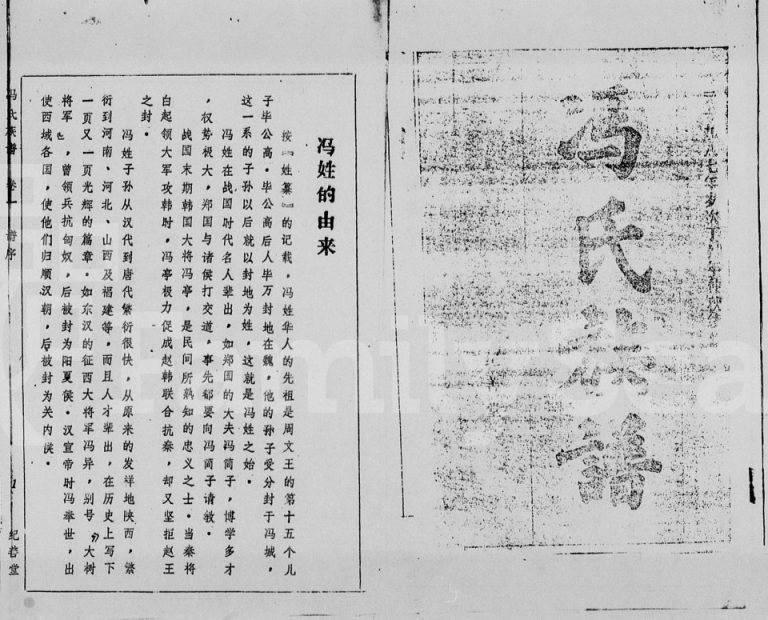 冯氏族谱
一九八七年岁次丁
冯姓的由来
按『姓纂』的记载，冯姓华人的先祖是周文王的第十五个儿
子毕公高·毕公高后人毕万封地在魏，他的孙子受分封于冯城，
这一系的子孙以后就以封地为姓，这就是冯姓之始·
冯姓在战国时代名人辈出，如郑国的大夫冯简子，博学多才
，权势极大，郑国与诸侯打交道，事先都要向冯简子请教·
战国末期韩国大将冯亭，是民间所熟知的忠义之士·当秦将
白起领大军攻韩时，冯亭极力促成赵韩联合抗秦，却又坚拒赵王
之封·
冯姓子孙从汉代到唐代繁衍很快，从原来的发祥地陕西，繁
衍到河南、河北、山西及福建等，而且人才辈出，在历史上写下
一页又一页光辉的篇章·如东汉的征西大将军冯异，别号『大树
将军』，曾领兵抗匈奴，后被封为阳夏侯·汉宣帝时冯奉世，出
使西域各国，使他们归顺汉朝，后被封为关内侯·
冯氏族谱 卷一 谱序
1
纪堂
FamilySea